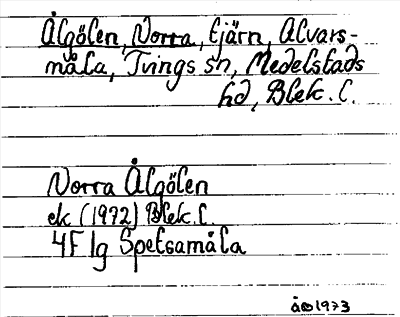 Ålgölen, Norra, tjärn, Alvars-
måla, Tvings sn, Medelstads
hd, Blek. l.
Norra Ålgölen
ek (1972) Blek. l.
4F 1g Spetsamåla
1973